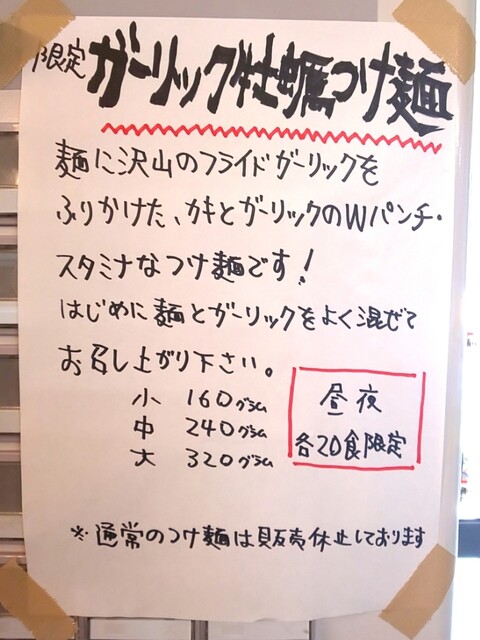 限定 ガーリック牡蠣つけ麺
麺に沢山のフライドガーリックを
ふりかけた、カキとガーリックのWパンチ・
スタミナなつけ麺です!
はじめに麺とガーリックをよく混ぜて
お召し上がり下さい。
小 160グラム
中 240グラム
大 320グラム
昼夜
各20食限定
※通常のつけ麺は販売休止しております